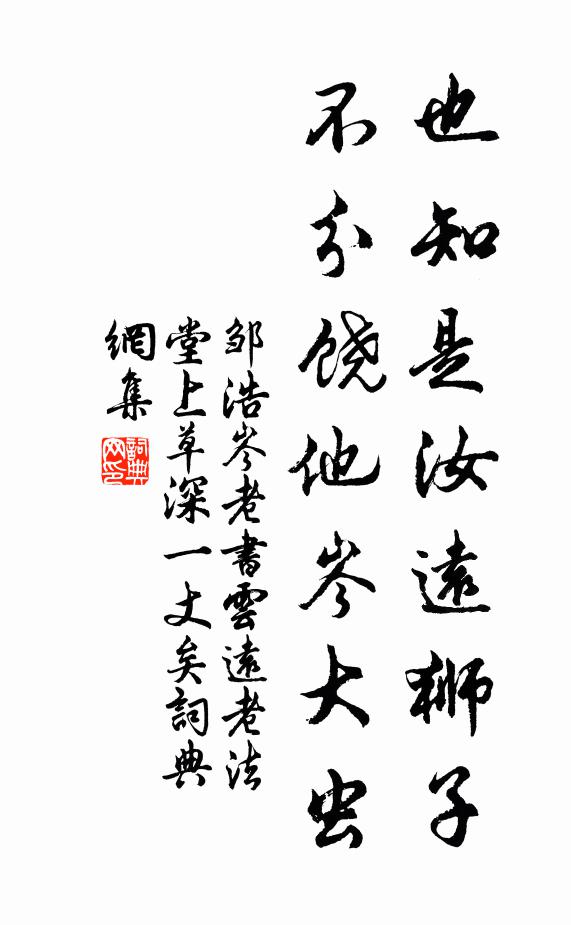 也知是汝遠狮子
不分饶他岑大虫
邹浩岑老書雲遠老法
堂上草深一丈矣詞典
網集
詞典网印